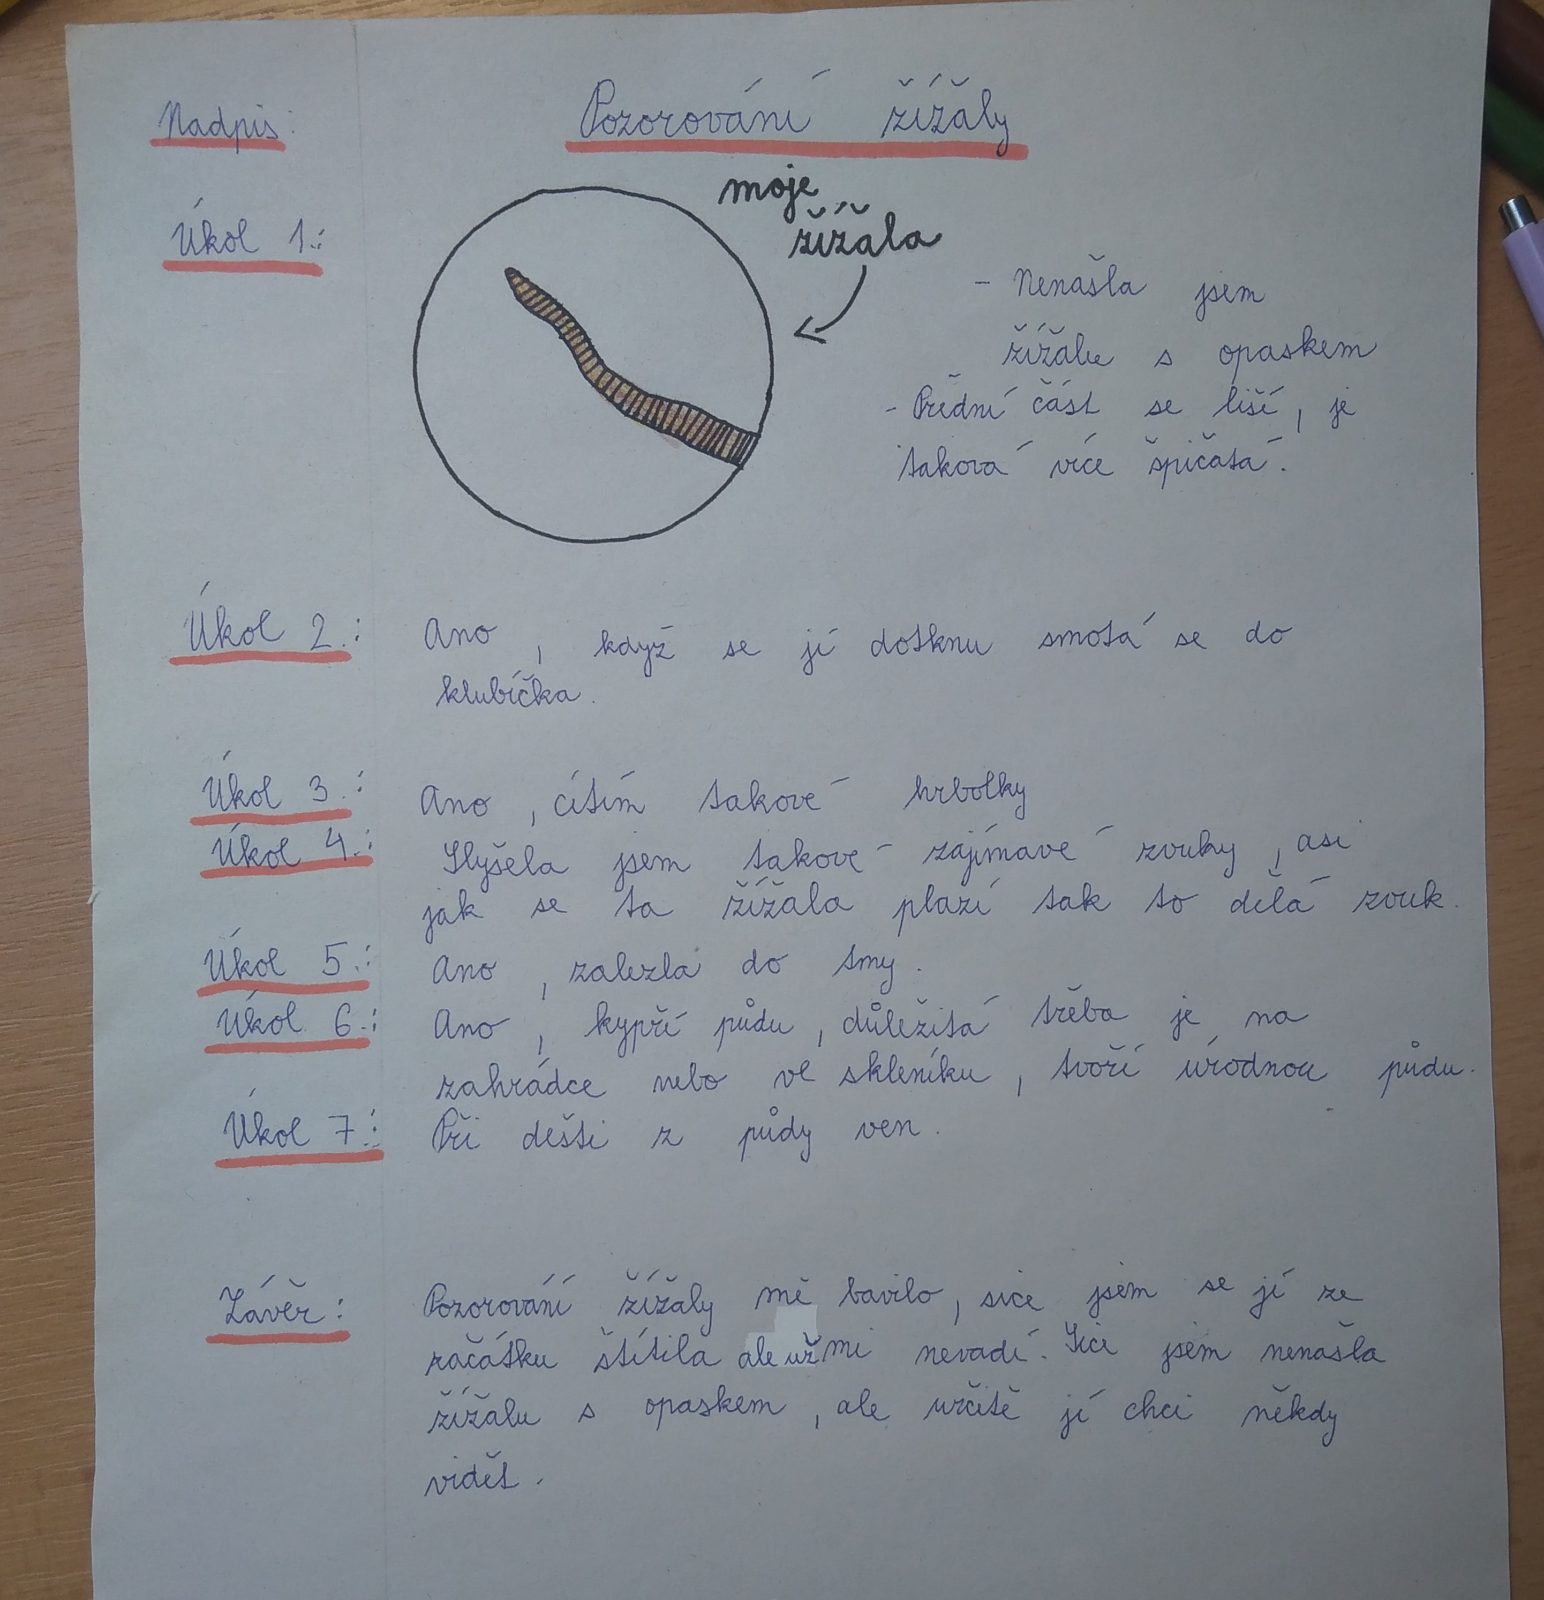 Nadpis: Pozorování žížaly
Úkol 1.:
moje
žížala
- Nenašla jsem
žížalu s opaskem
- Přední část se liší, je
taková více špičatá.
Úkol 2.: Ano, když se jí dotknu smotá se do
klubíčka.
Úkol 3.: Ano, cítím takové hrbolky
Úkol 4.: Slyšela jsem takové zajímavé zvuky, asi
jak se ta žížala plazí tak to dělá zvuk.
Úkol 5.: Ano, zalezla do tmy.
Úkol 6.: Ano, kypří půdu, důležitá třeba je na
zahrádce nebo ve skleníku, tvoří úrodnou půdu.
Úkol 7.: Při dešti z půdy ven.
Závěr: Pozorování žížaly mě bavilo, sice jsem se jí ze
začátku štítila ale už mi nevadí. Sice jsem nenašla
žížalu s opaskem, ale určitě jí chci někdy
vidět.